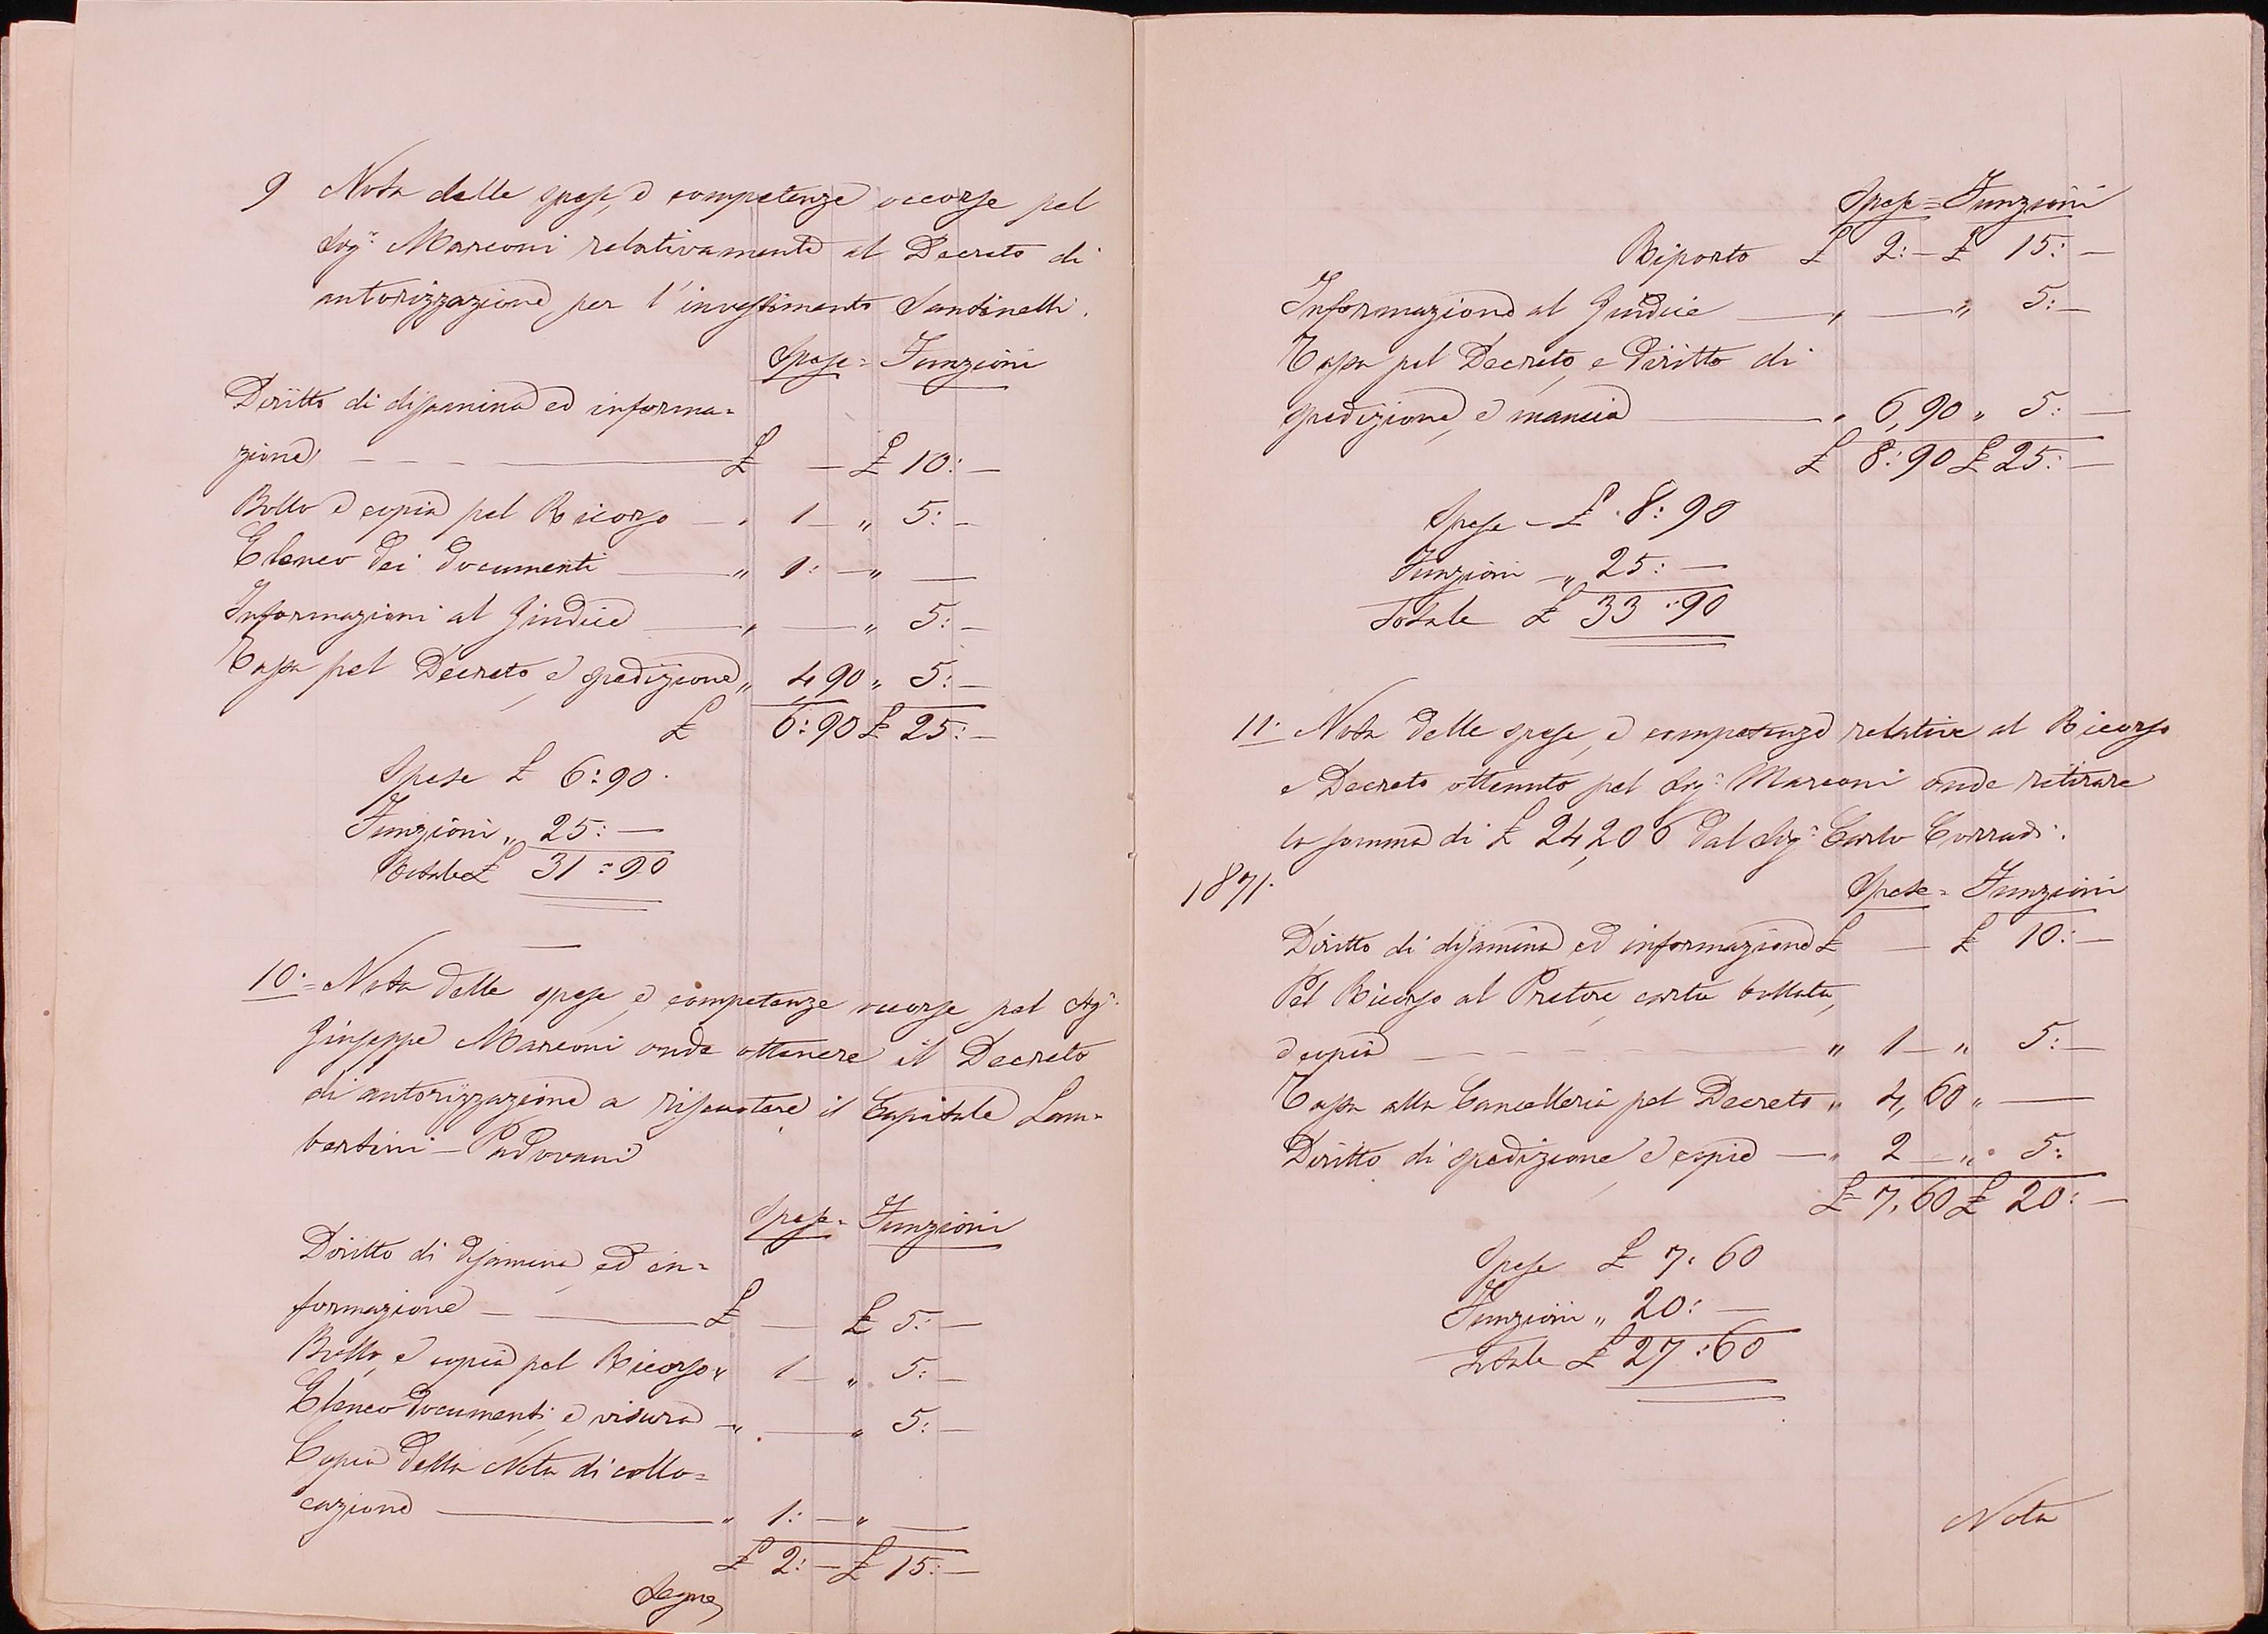 9 Nota delle spese, e competenze occorse pel
Sig.r Marconi relativamente al Decreto di
autorizzazione, per l'investimento Santinelli.
Spese = Funzioni
Diritto di disamina ed informa=
zione £ — £ 10: —
Bollo e copia pel Ricorso — " 1 — " 5: —
Elenco dei documenti — " 1: — " —
Informazioni al Giudice — " — " 5: —
Tassa pel Decreto, e spedizione " 4 90 " 5: —
£ 6:90 £ 25: —
Spese £ 6:90.
Funzioni " 25: —
Totale £ 31:90
10.= Nota delle spese, e competenze occorse pel Sig.r
Giuseppe Marconi onde ottenere il Decreto
di autorizzazione a riscuotere il Capitale Lam=
bertini — Padovani
Spese = Funzioni
Diritto di disamina, ed in=
formazione — £ — £ 5: —
Bollo, e copia pel Ricorso " 1 — " 5: —
Elenco documenti, e visura — " — " 5: —
Copia della Nota di collo=
cazione — " 1: — " —
£ 2: — £ 15: —
Segue
Spese = Funzioni
Riporto £ 2: — £ 15: —
Informazione al Giudice — " — " 5: —
Tassa pel Decreto, e diritto di
spedizione, e mancia — " 6,90 " 5: —
£ 8:90 £ 25: —
Spese — £ 8:90
Funzioni — " 25: —
Totale £ 33:90
11. Nota delle spese, e competenze relative al Ricorso
e Decreto ottenuto pel Sig.r Marconi onde ritirare
la somma di £ 24,206 dal Sig.r Carlo Corradi.
1871.
Spese = Funzioni
Diritto di disamina ed informazione £ — £ 10: —
Pel Ricorso al Pretore, carta bollata,
e copia — " 1 — " 5: —
Tassa alla Cancelleria pel Decreto " 4,60 " —
Diritto di spedizione, e copie — " 2 — " 5:
£ 7,60 £ 20: —
Spese £ 7:60
Funzioni " 20: —
Totale £ 27:60
Nota